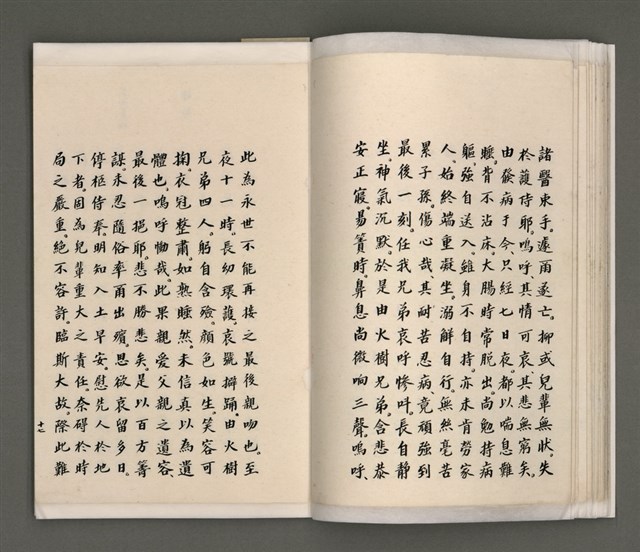 諸醫束手。遽爾遂亡。抑或兒輩無狀。失
於護侍耶。嗚呼。其情可哀。其悲無窮矣。
由發病于今、只經七日夜。都以喘息難
睡、背不沾床。大腸時常脫出。尚勉持病
軀、強自送入。雖身不自持。亦未肯勞家
人。始終端重凝坐。溺鮮自行。無然毫苦
累子孫傷心哉。其耐苦忍病、竟頑強到
最後一刻。任我兄弟哀呼慘叫。長自靜
坐。神氣沉默。於是由火樹兄弟。含悲恭
安正寢。易簀時鼻息尚微响三聲。嗚呼、
此為永世不能再接之最後親吻也。至
夜十一時。長幼環護。哀號擗踊。由火樹
兄弟四人。躬自含殮。顏色如生。笑容可
掬。衣冠整肅。如熟睡然。未信真以為遺
體也。嗚呼慟哉。此果親愛父親之遺容、
最後一挹耶。悲不勝悲矣。是以百方籌
謀。未忍隨俗率爾出殯。思欲哀留多日。
停柩侍奉。明知入土早安。慰先人於地
下者。固為兒輩重大之責任。奈碍於時
局之嚴重。絕不容許。臨斯大故。際此難
十七